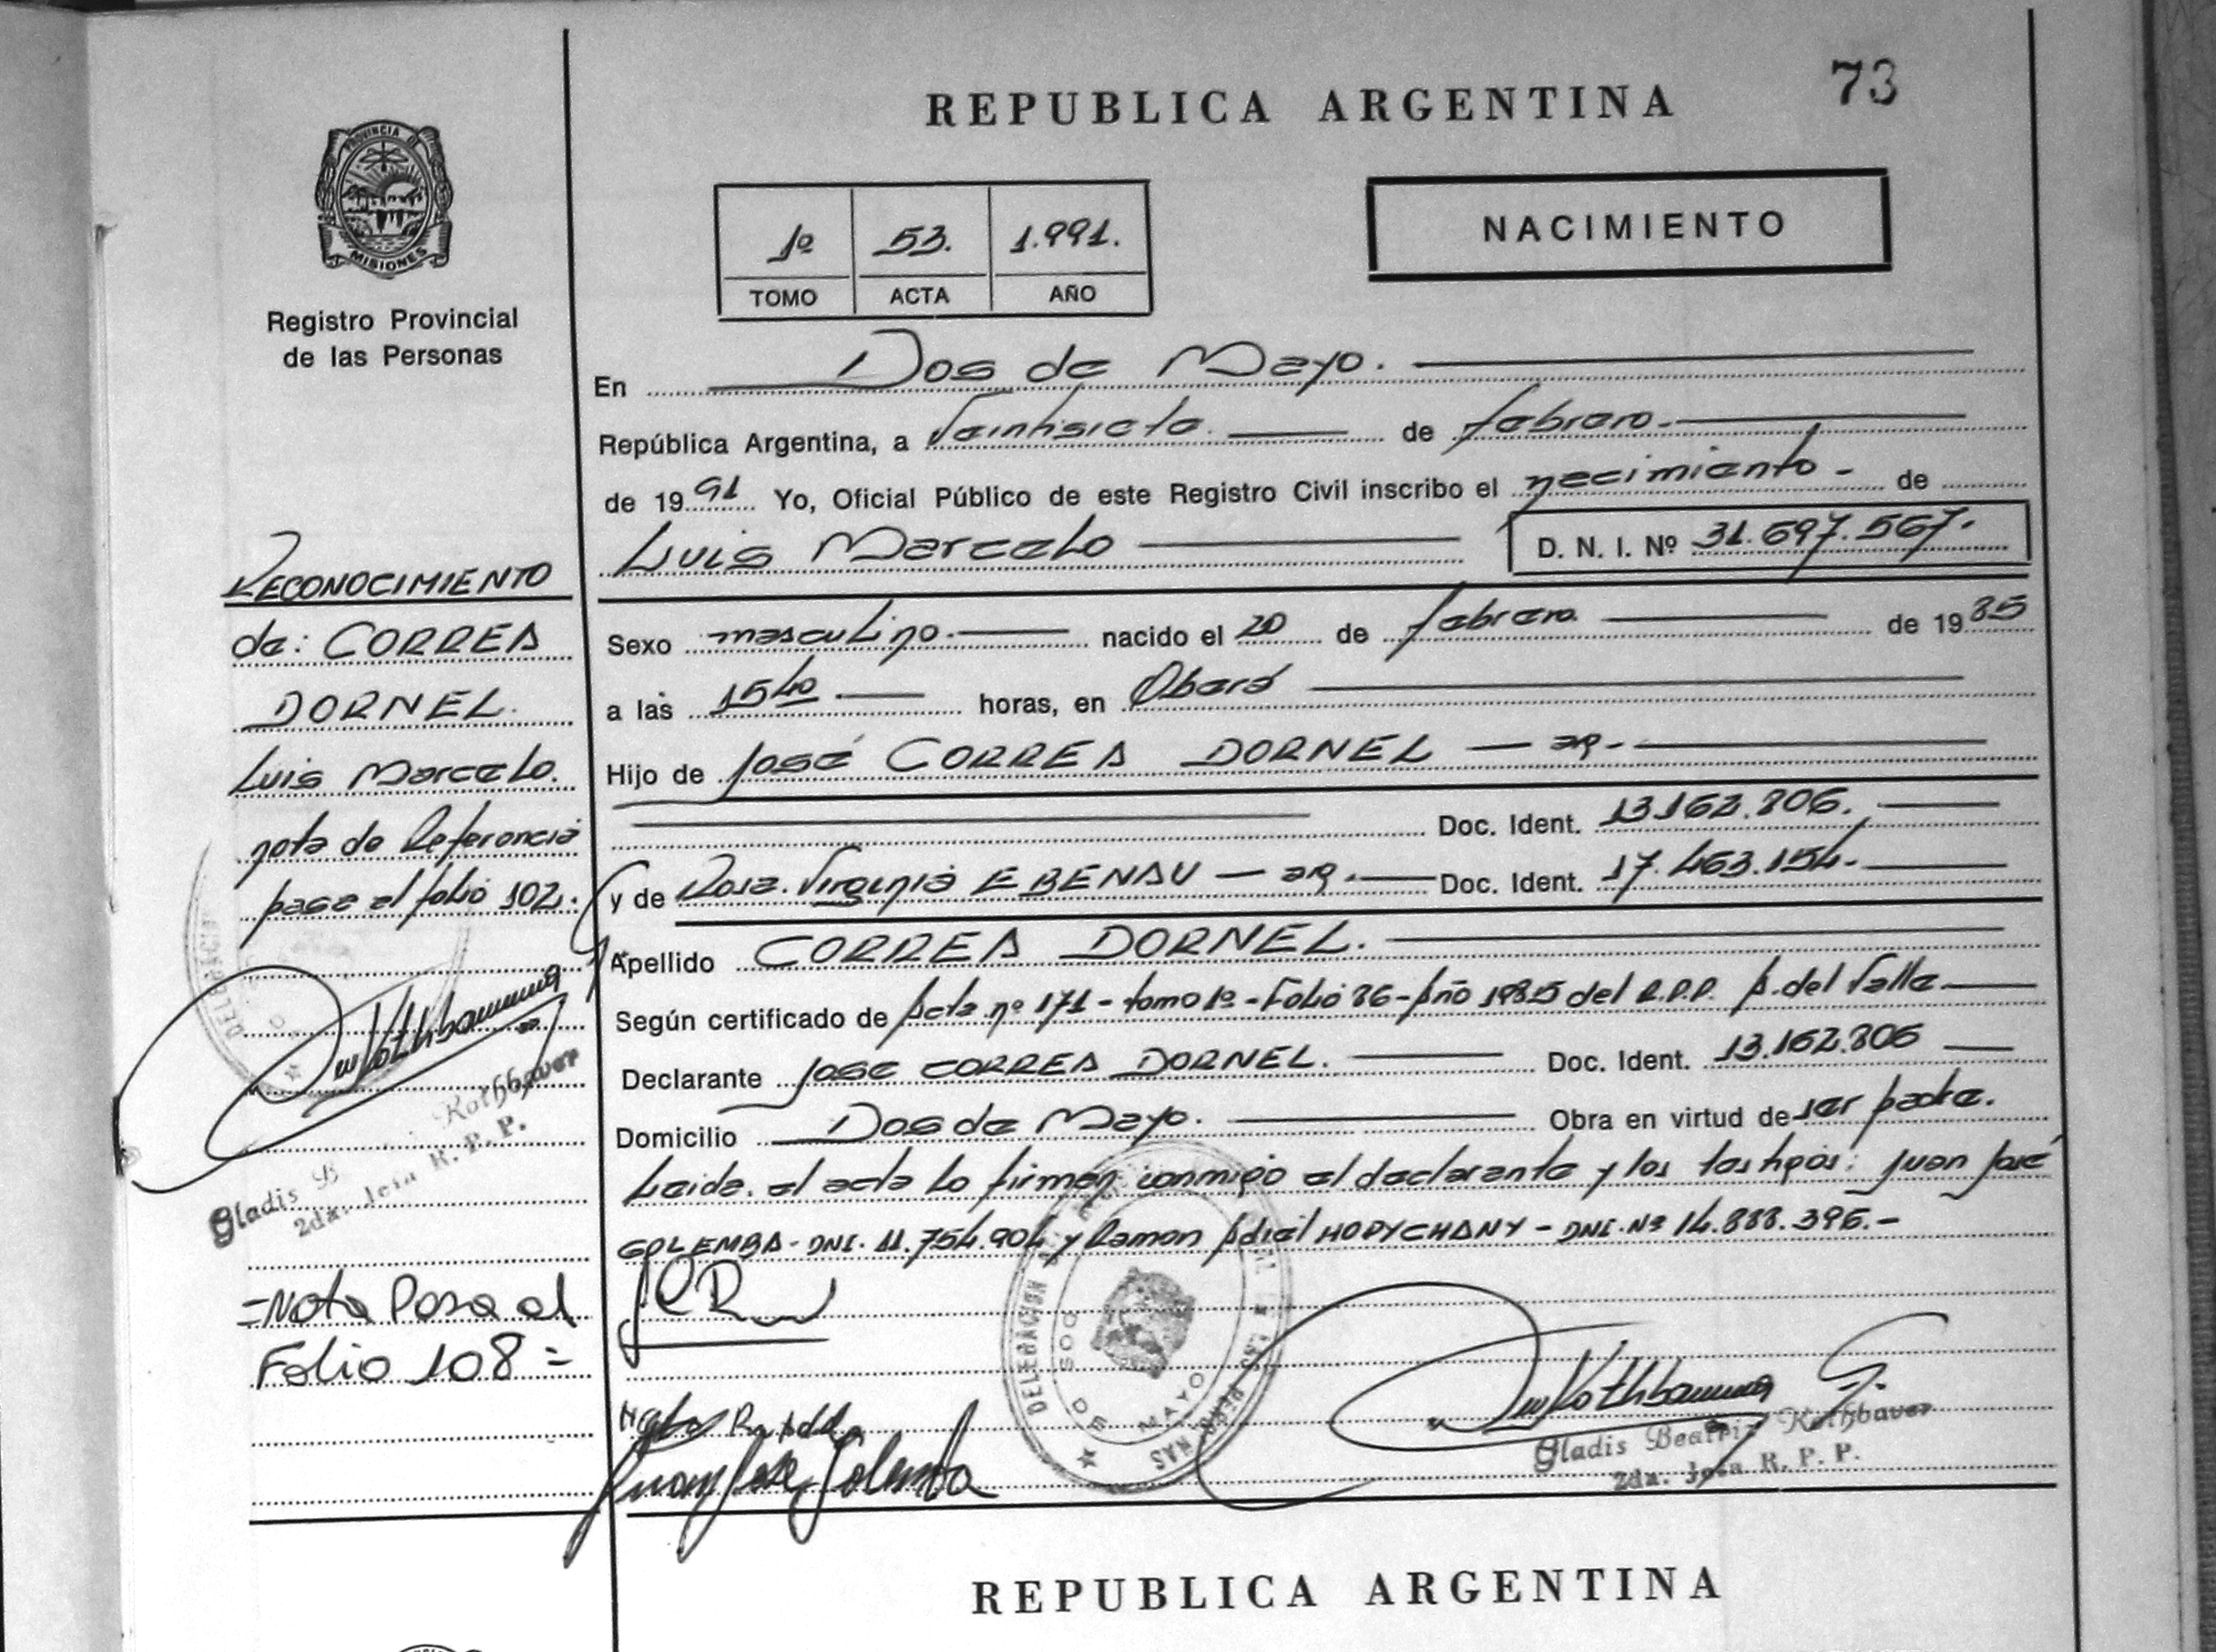 REPUBLICA ARGENTINA
73
PROVINCIA DE
MISIONES
Registro Provincial
de las Personas
1º 53. 1.991.
TOMO ACTA AÑO
NACIMIENTO
En Dos de Mayo.
República Argentina, a Veintisiete. de febrero.
de 1991 Yo, Oficial Público de este Registro Civil inscribo el nacimiento - de
Luis Marcelo
D. N. I. Nº 31.697.567.
Sexo masculino. nacido el 20 de febrero. de 1985
a las 15 40 horas, en Oberá
Hijo de José CORREA DORNEL - ar.
Doc. Ident. 13.162.806.
y de Rosa Virginia EBENAU - ar. Doc. Ident. 17.463.154.
Apellido CORREA DORNEL.
Según certificado de Acta nº 171 - tomo 1º - Folio 86 - Año 1985 del R.P.P. A. del Valle
Declarante José CORREA DORNEL. Doc. Ident. 13.162.806
Domicilio Dos de Mayo. Obra en virtud de ser padre.
Leida. el acta lo firman conmigo el declarante y los testigos: Juan José
GOLEMBA - DNI. 11.754.904 y Ramon Adriel HOPYCHANY - DNI. Nº 14.888.396. -
RECONOCIMIENTO
de: CORREA
DORNEL.
Luis Marcelo.
nota de Referencia
pase al folio 102.
Gladis B Kothbaver
2da. Jefa R. P. P.
=Nota Pasa al
Folio 108=
DELEGACION
DOS DE MAYO
Juan Jose Golemba
Gladis Beatriz Kothbaver
2da. Jefa R. P. P.
REPUBLICA ARGENTINA